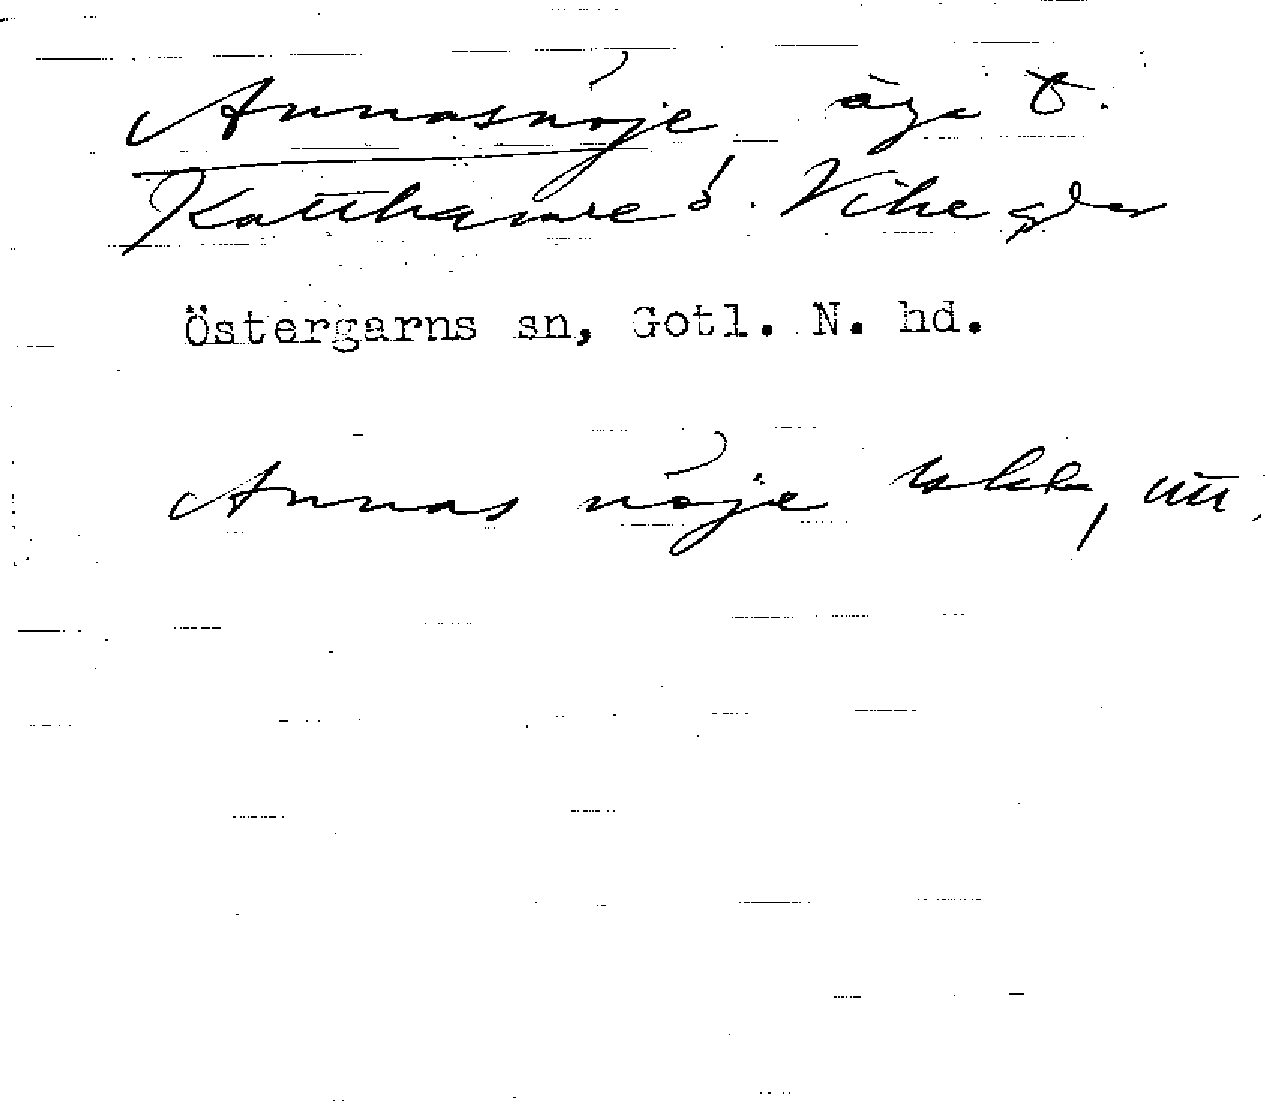 Annasnöje äga t.
Katthamre o. Vike gdar
Östergarns sn, Gotl. N. hd.
Annas nöje